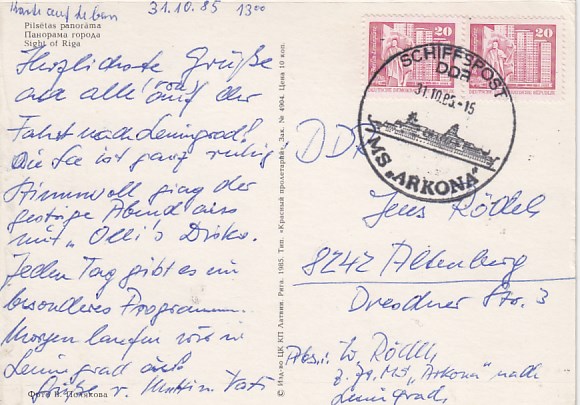 Karte auf de ban 31.10.85 13⁰⁰
Pilsētas panorāma
Панорама города
Sight of Riga
Herzlichste Grüße
an alle von auf der
Fahrt nach Leningrad!
Die See ist ganz ruhig
Stimmvoll ging der
gestrige Abend aus
mit „Olli's Disko.
Jeden Tag gibt es ein
besonderes Programm.
Morgen laufen wir in
Leningrad ein.
Grüße v. Mutti u. Vati
Фото В. Полякова
© Изд-во ЦК КП Латвии. Рига. 1985. Тип. «Красный пролетарий». Зак. № 4904. Цена 10 коп.
20 20
SCHIFFSPOST
DDR
31.10.85-15
MS „ARKONA"
DDR
Jens Rödel
8242 Altenberg
Dresdner Str. 3
Abs.: W. Rödel
z. Zt. MS „Arkona" nach
Leningrad